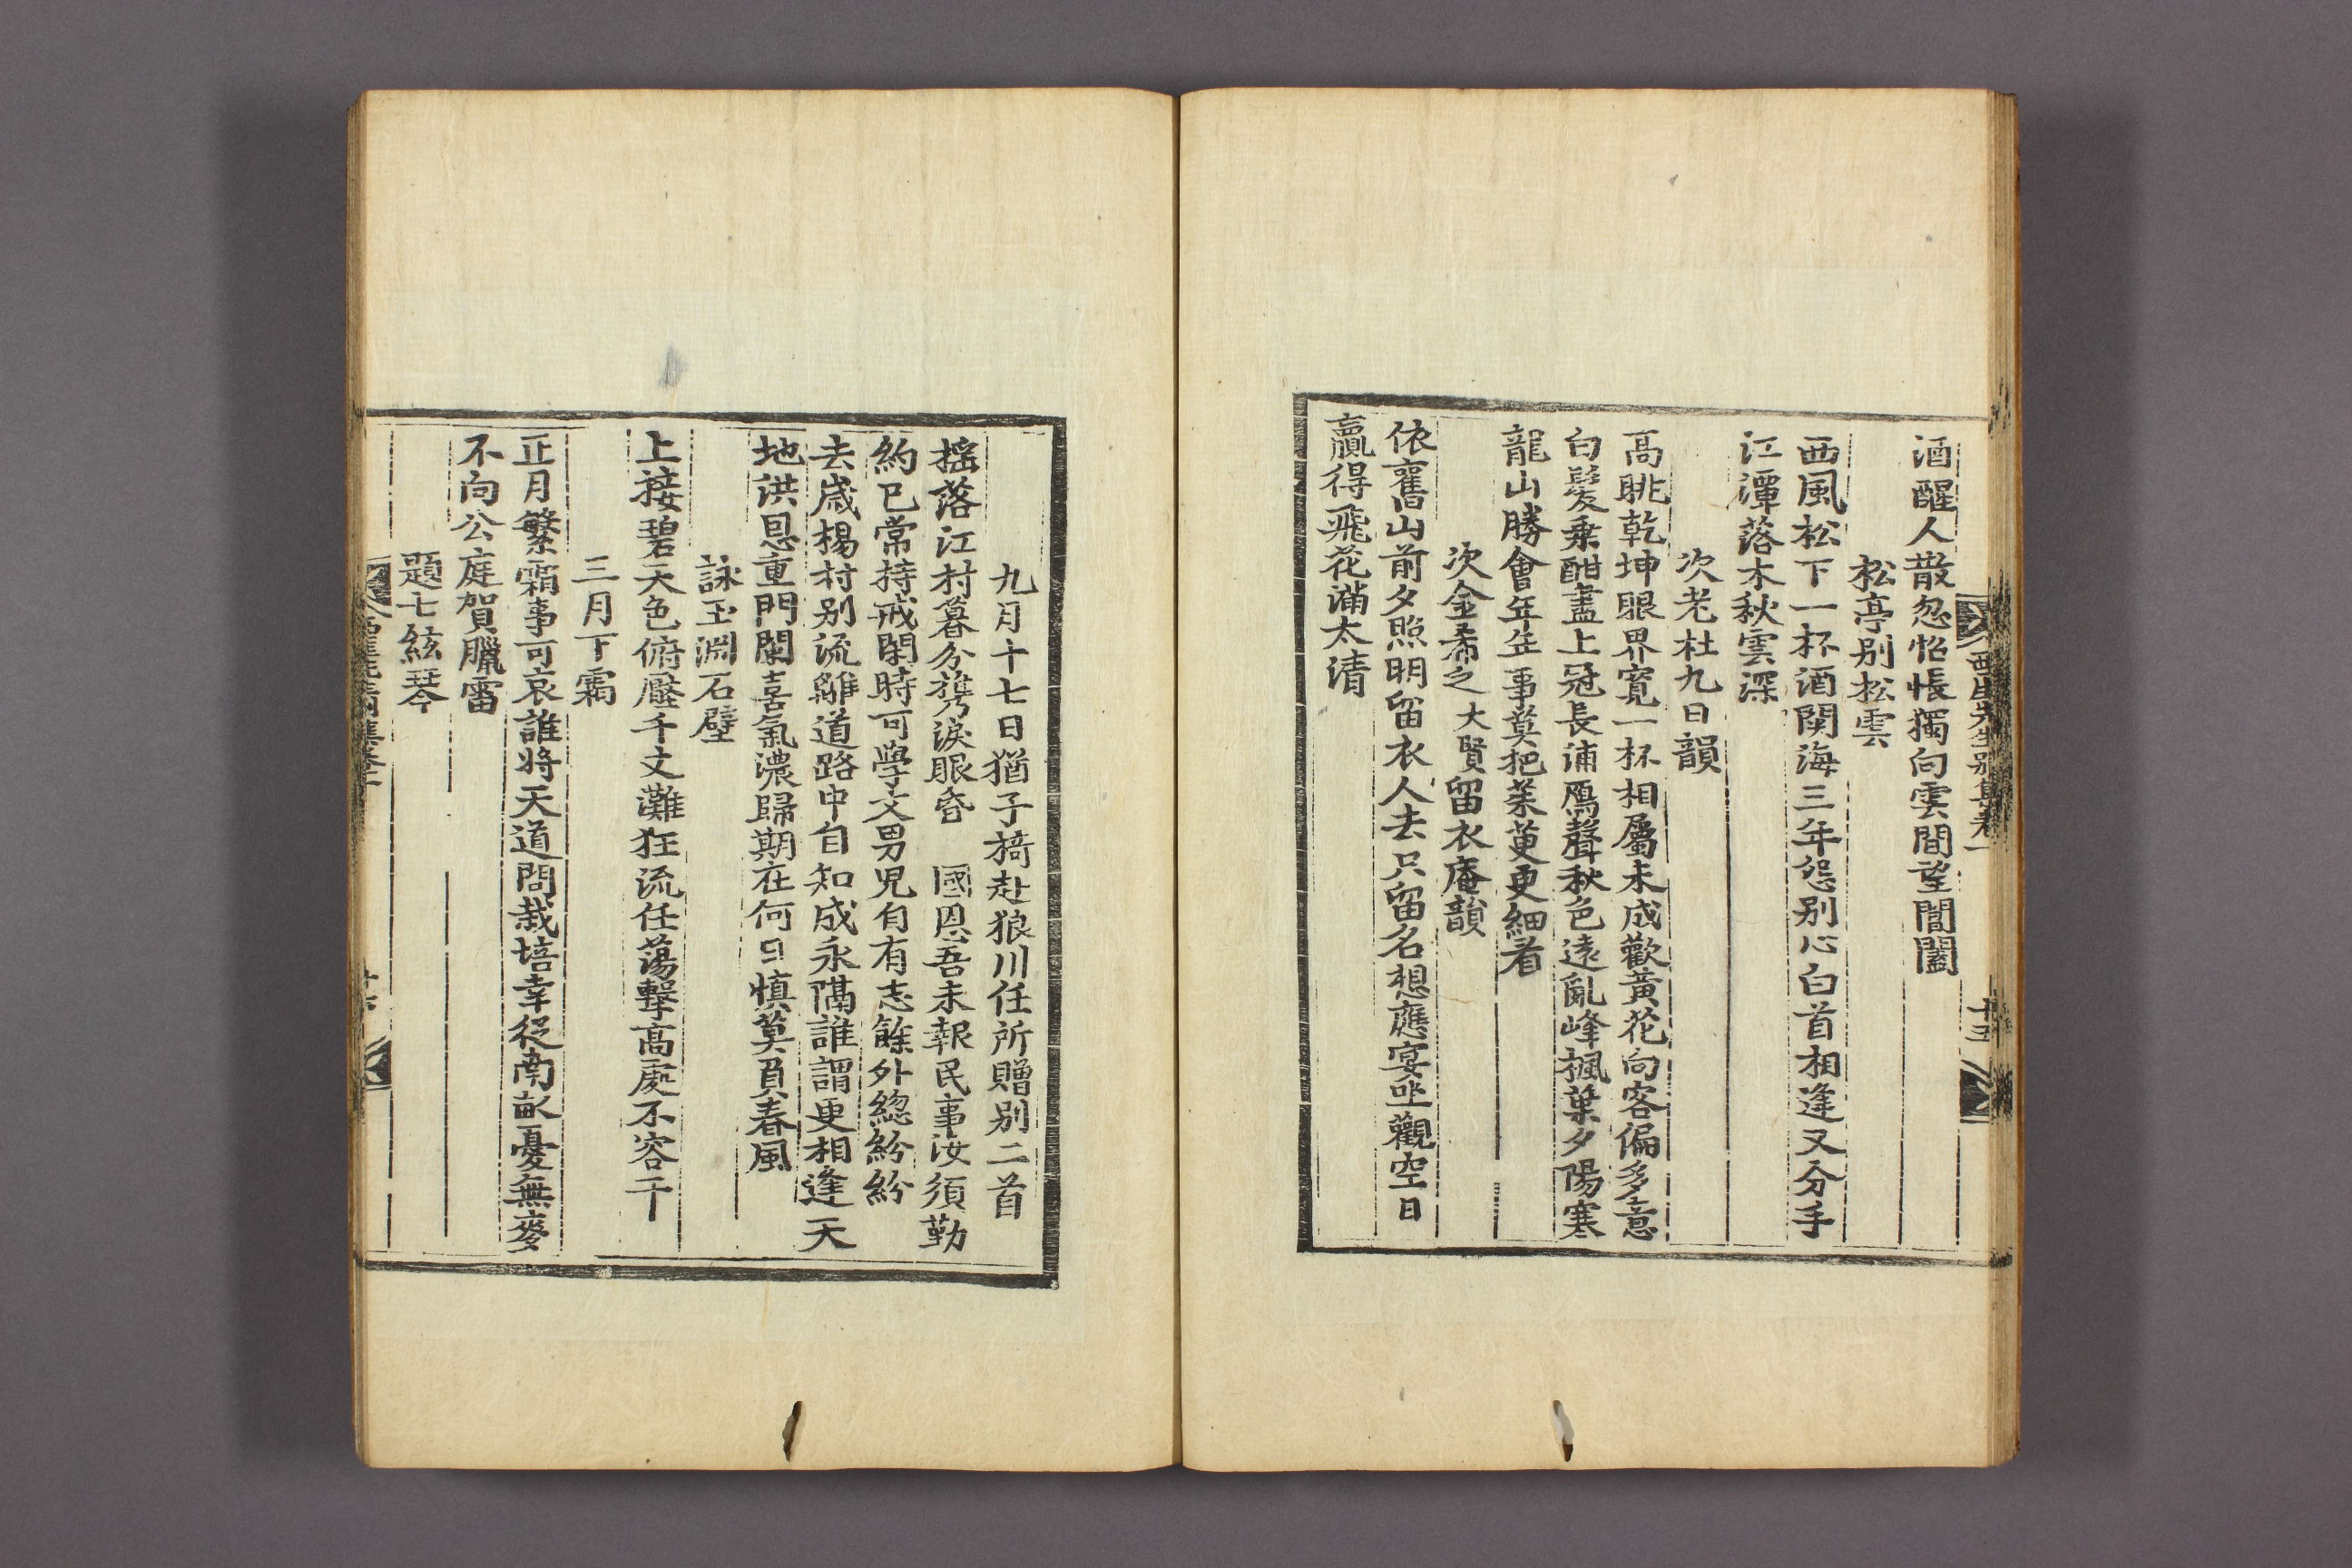 酒醒人散忽怊悵獨向雲間望閶闔
松亭別松雲
西風松下一杯酒関海三年怨別心白首相逢又分手
江潭落木秋雲深
次老杜九日韻
高眺乾坤眼界寬一杯相屬未成歡黃花向客偏多意
白髮乗酣盡上冠長浦鴈聲秋色遠亂峰楓葉夕陽寒
龍山勝會年年事莫把茱萸更細看
次金希之大賢留衣庵韻
依舊山前夕照明留衣人去只留名想應宴坐觀空日
贏得飛花滿太清
十三
九月十七日猶子𥛭赴狼川任所贈別二首
搖落江村暮分携淚眼昏 國恩吾未報民事汝須勤
約已常持戒閑時可學文男児自有志餘外緫紛紛
去歲楊村別流離道路中自知成永隔誰謂更相逢天
地洪恩重門闌喜氣濃歸期在何日愼莫負春風
詠玉淵石壁
上接碧天色俯壓千丈灘狂流任蕩擊高處不容干
三月下霜
正月繁霜事可哀誰將天道問栽培幸從南畝憂無麥
不向公庭賀臘雷
題七絃琴